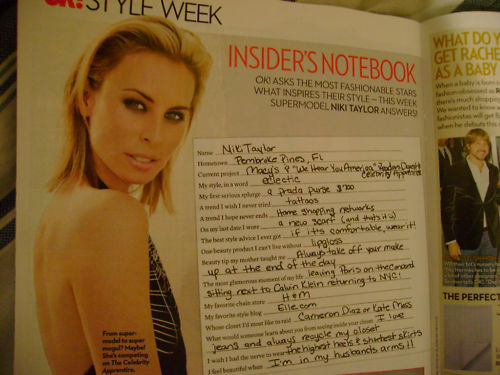 OK! STYLE WEEK
INSIDER'S NOTEBOOK
OK! ASKS THE MOST FASHIONABLE STARS
WHAT INSPIRES THEIR STYLE – THIS WEEK
SUPERMODEL NIKI TAYLOR ANSWERS!
Name Niki Taylor
Hometown Pembroke Pines, FL
Current project Macy's & "We Hear You America" Reader's Digest
Celebrity Apprentice
My style, in a word eclectic
My first serious splurge a prada purse $700
A trend I wish I never tried tattoos
A trend I hope never ends Home shopping networks
On my last date I wore a new scarf (and that's it!)
The best style advice I ever got if it's comfortable, wear it!
One beauty product I can't live without lipgloss
Beauty tip my mother taught me Always take off your make
up at the end of the day
The most glamorous moment of my life leaving Paris on the Concord
sitting next to Calvin Klein returning to NYC!
My favorite chain store H&M
My favorite style blog Elle.com
Whose closet I'd most like to raid Cameron Diaz or Kate Moss
What would someone learn about you from seeing inside your closet I love
jeans and always recycle my closet
I wish I had the nerve to wear the highest heels & shortest skirts
I feel beautiful when I'm in my husbands arms!!
From super-
model to super
mogul? Maybe!
She's competing
on The Celebrity
Apprentice.
WHAT DO Y
GET RACHE
AS A BABY
When a baby is born
fashion-obsessed as
there's much
We wanted to know
fashionistas will get
when he debuts this
THE PERFECT